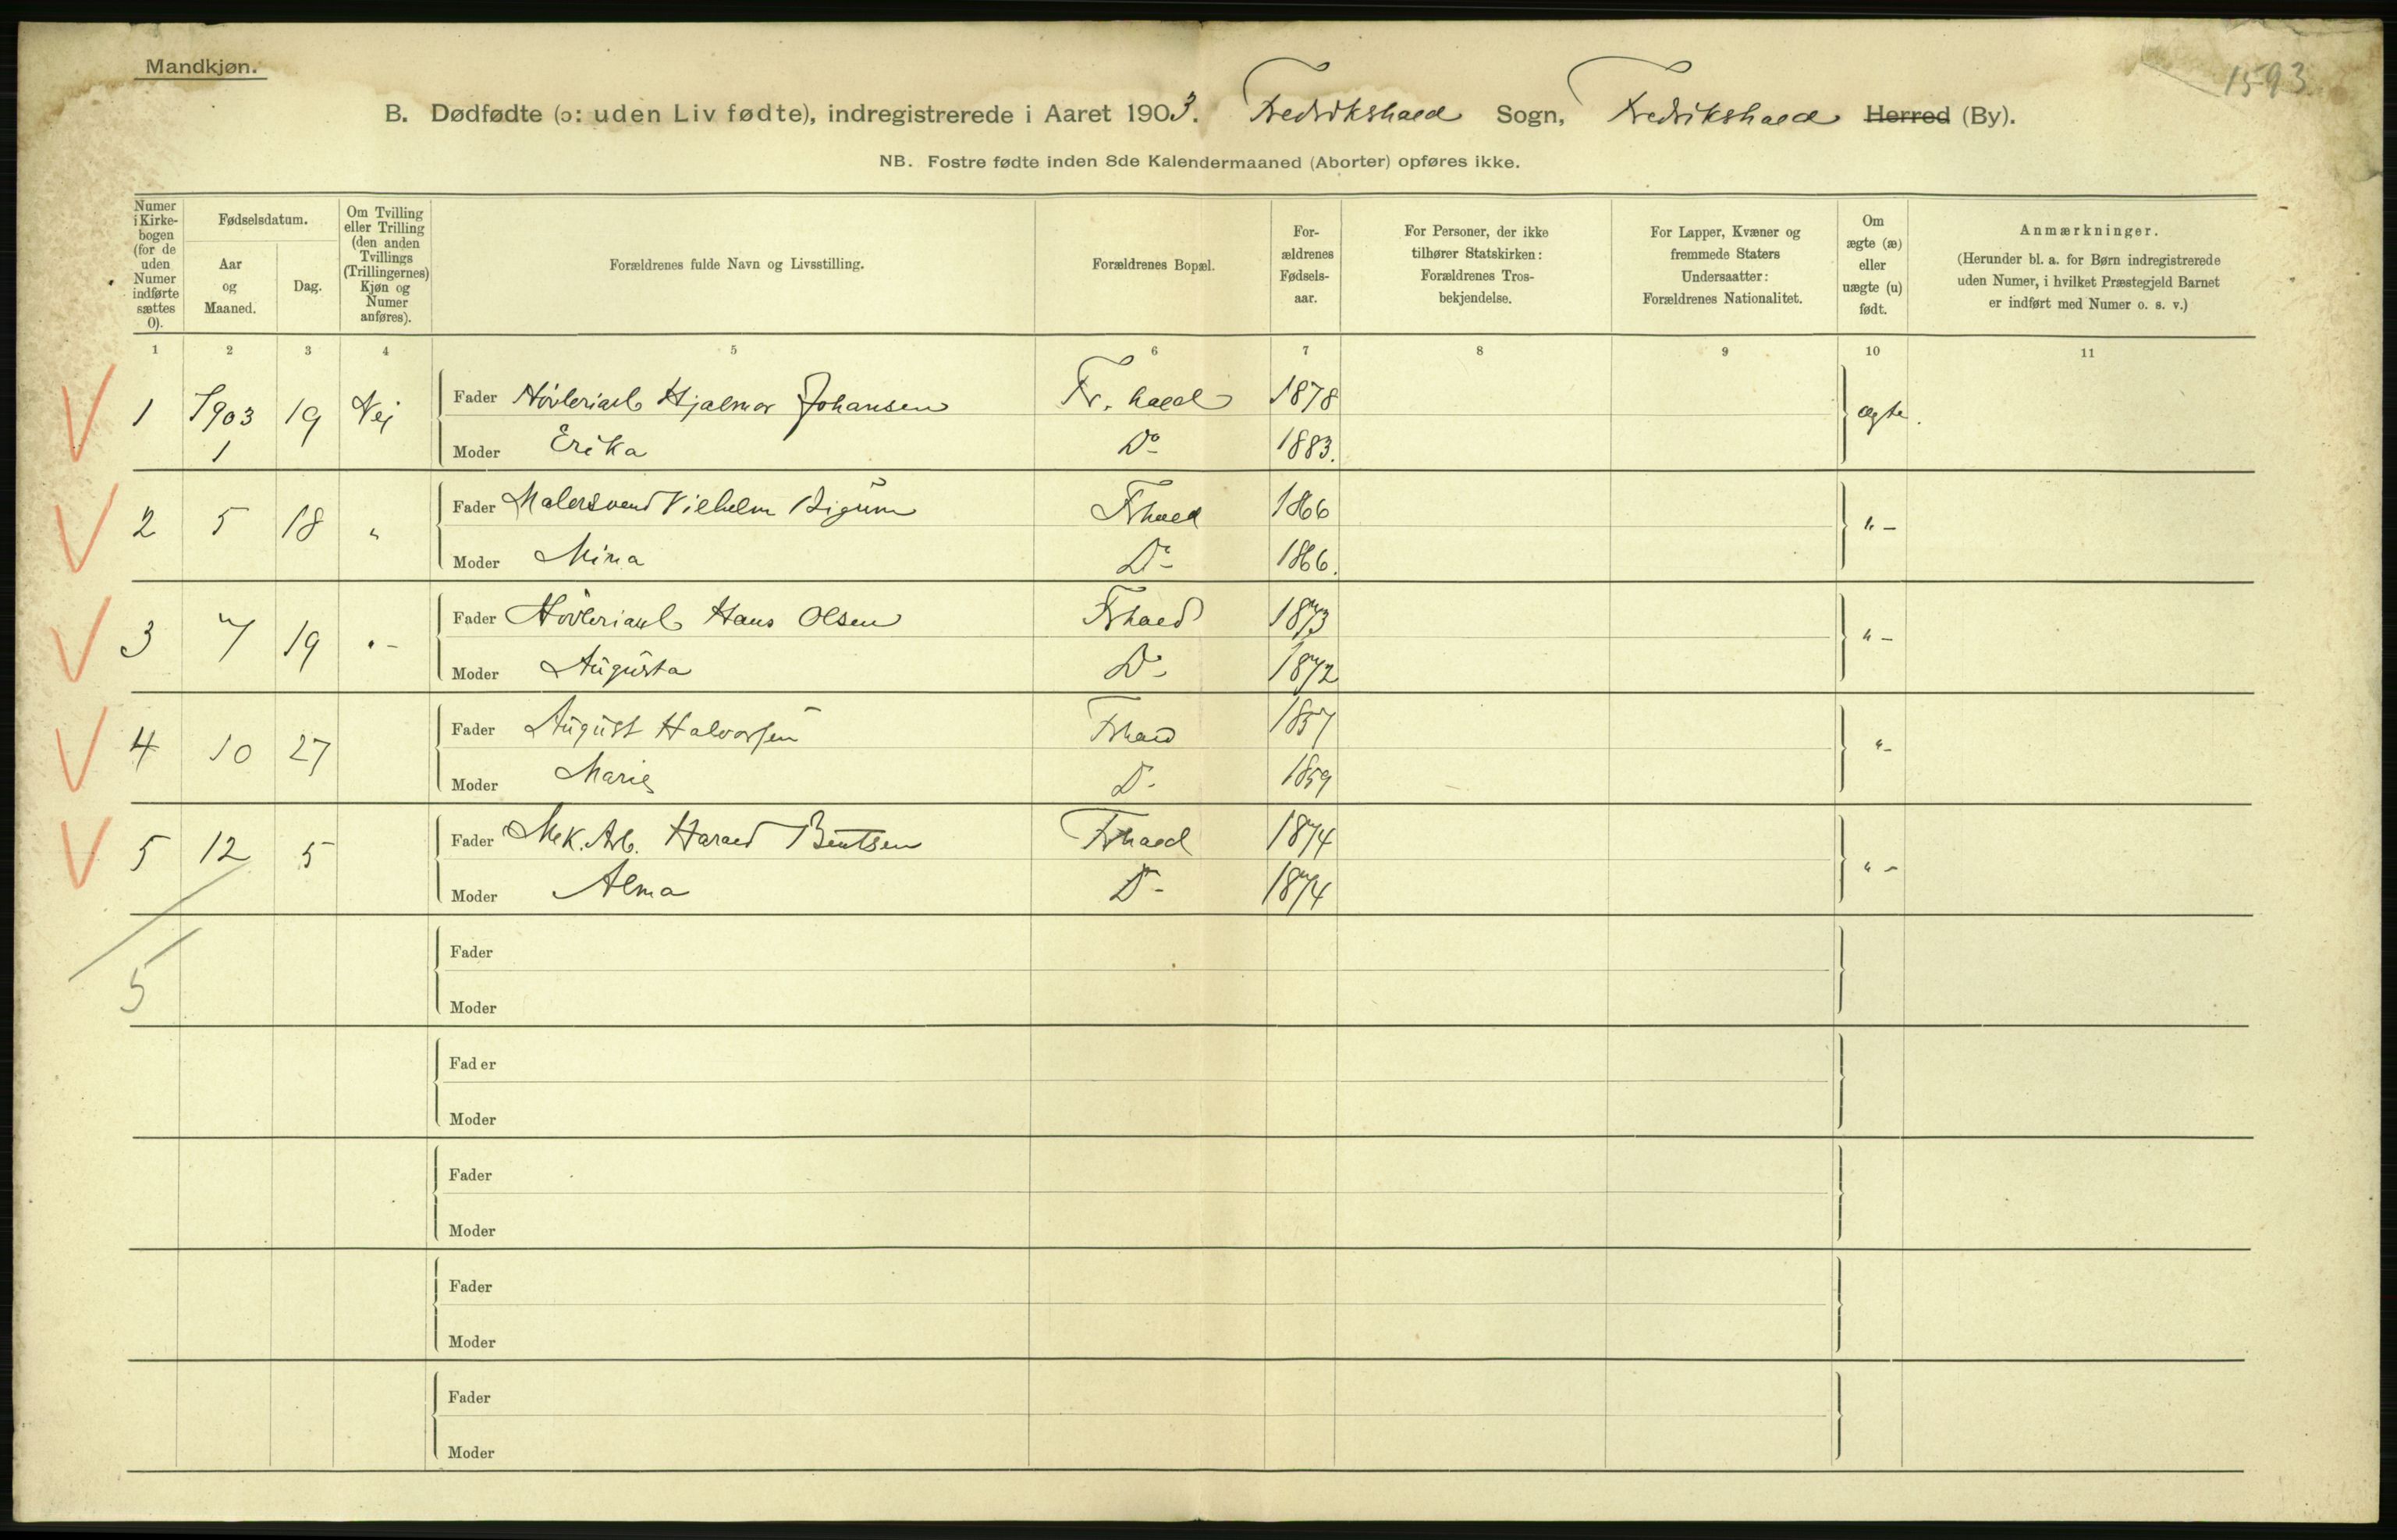 Mandkjøn.
1593
B. Dødfødte (ɔ: uden Liv fødte), indregistrerede i Aaret 1903. Fredrikshald Sogn, Fredrikshald Herred (By).
NB. Fostre fødte inden 8de Kalendermaaned (Aborter) opføres ikke.
Numer i Kirkebogen (for de uden Numer indførte sættes 0).
Fødselsdatum.
Aar og Maaned.
Dag.
Om Tvilling eller Trilling (den anden Tvillings (Trillingernes) Kjøn og Numer anføres).
Forældrenes fulde Navn og Livsstilling.
Forældrenes Bopæl.
Forældrenes Fødselsaar.
For Personer, der ikke tilhører Statskirken: Forældrenes Trosbekjendelse.
For Lapper, Kvæner og fremmede Staters Undersaatter: Forældrenes Nationalitet.
Om ægte (æ) eller uægte (u) født.
Anmærkninger. (Herunder bl. a. for Børn indregistrerede uden Numer, i hvilket Præstegjeld Barnet er indført med Numer o. s. v.)
1 2 3 4 5 6 7 8 9 10 11
1 1903 1 19 Nej Fader Høvleriarb Hjalmar Johansen Fr. hald 1878 ægte.
Moder Erika Do 1883.
2 5 18 " Fader Malersvend Vilhelm Bigum Fhald 1866 " -
Moder Mina Do 1866.
3 7 19 " - Fader Høvleriarb Hans Olsen Fhald 1873 " -
Moder Augusta Do 1872
4 10 27 Fader August Halvorsen Fhald 1857 " -
Moder Marie D- 1859
5 12 5 Fader Mek. Arb. Harald Bentsen Fhald 1874 " -
Moder Alma D- 1874
5
Fader
Moder
Fader
Moder
Fader
Moder
Fader
Moder
Fader
Moder